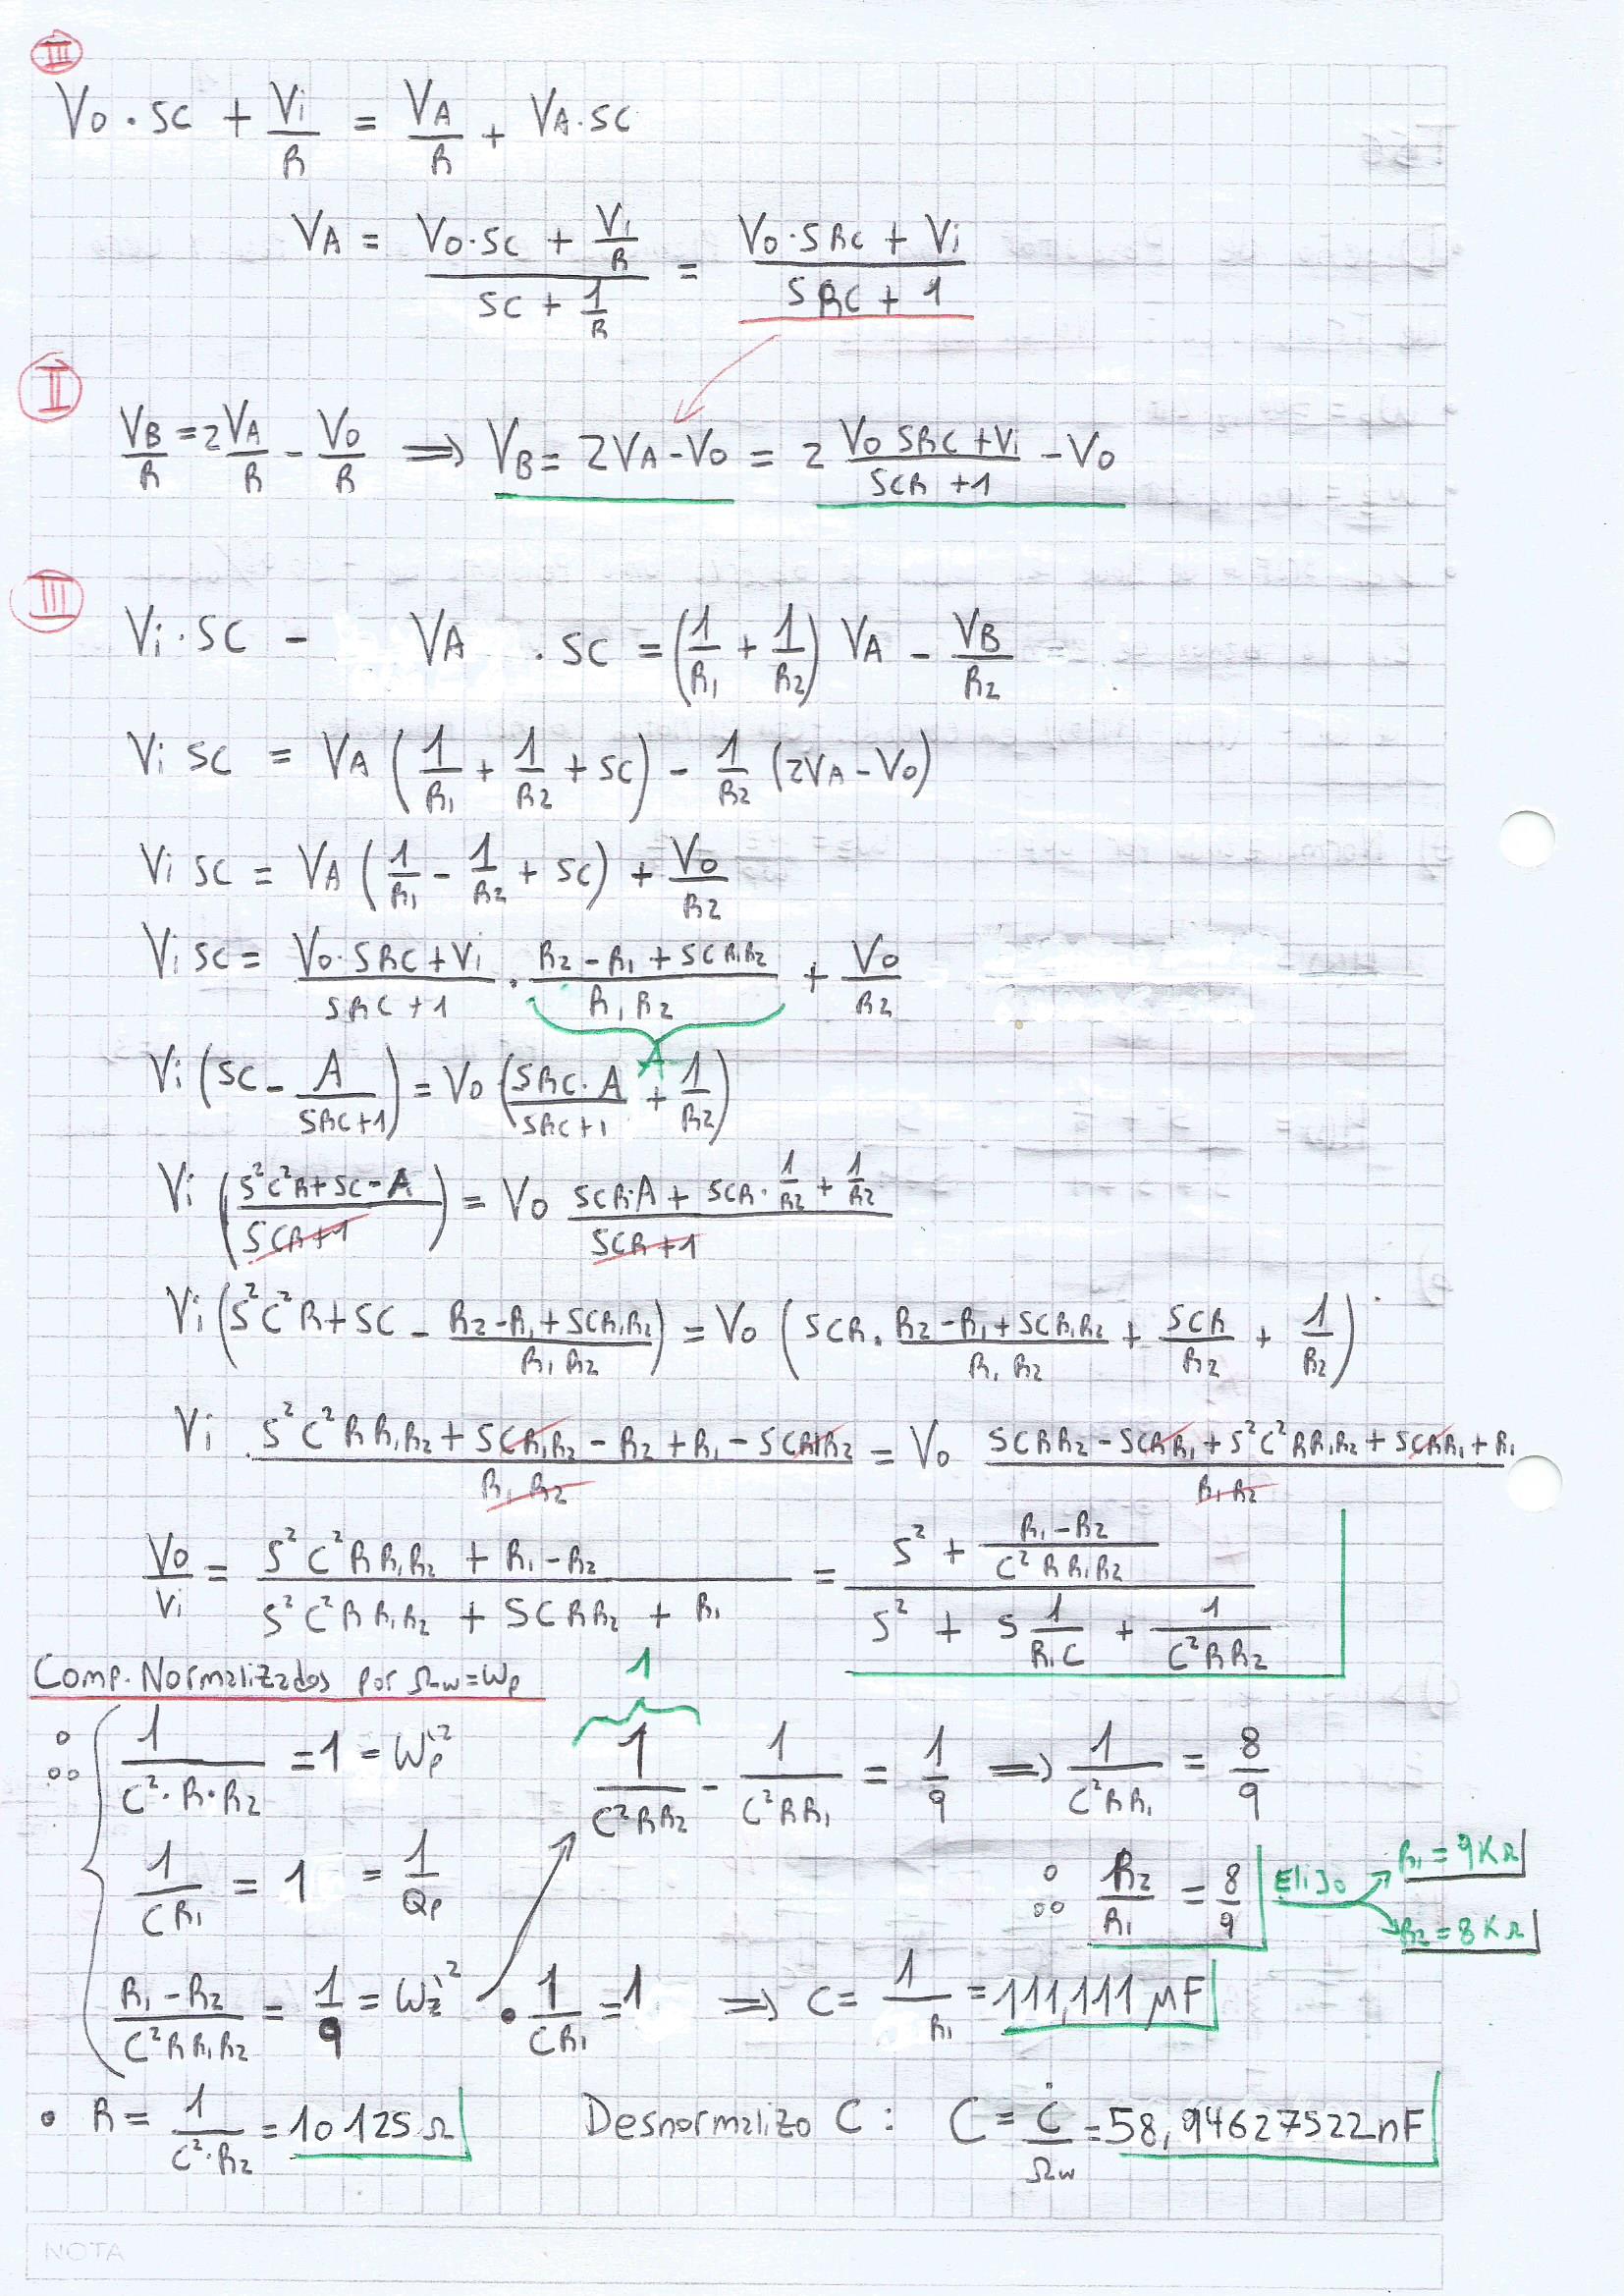 III
Vo · SC + Vi/R = VA/R + VA·SC
VA = (Vo·SC + Vi/R)/(SC + 1/R) = (Vo·SRC + Vi)/(SRC + 1)
II
VB/R = 2VA/R - Vo/R ⟹ VB = 2VA - Vo = 2 (Vo SRC + Vi)/(SCR + 1) - Vo
III
Vi · SC - VA · SC = (1/R1 + 1/R2) VA - VB/R2
Vi SC = VA (1/R1 + 1/R2 + SC) - 1/R2 (2VA - Vo)
Vi SC = VA (1/R1 - 1/R2 + SC) + Vo/R2
Vi SC = (Vo·SRC + Vi)/(SRC + 1) · (R2 - R1 + SCR1R2)/(R1R2) + Vo/R2
A
Vi (SC - A/(SRC+1)) = Vo (SRC·A/(SRC+1) + 1/R2)
Vi ((S²C²R + SC - A)/(SCR+1)) = Vo (SCR·A + SCR · 1/R2 + 1/R2)/(SCR+1)
Vi (S²C²R + SC - (R2 - R1 + SCR1R2)/(R1R2)) = Vo (SCR · (R2 - R1 + SCR1R2)/(R1R2) + SCR/R2 + 1/R2)
Vi · (S²C²RR1R2 + SCR1R2 - R2 + R1 - SCR1R2)/(R1R2) = Vo (SCRR2 - SCRR1 + S²C²RR1R2 + SCRR1 + R1)/(R1R2)
Vo/Vi = (S²C²RR1R2 + R1 - R2)/(S²C²RR1R2 + SCRR2 + R1) = (S² + (R1 - R2)/(C²RR1R2))/(S² + S 1/(R1C) + 1/(C²RR2))
Comp. Normalizados por Ωw = Wp
∴ { 1/(C²·R·R2) = 1 = Wp'²
1
1/(C²RR2) - 1/(C²RR1) = 1/9 ⟹ 1/(C²RR1) = 8/9
1/(CR1) = 1 = 1/Qp
∴ R2/R1 = 8/9 Elijo R1 = 9KΩ
R2 = 8KΩ
(R1 - R2)/(C²RR1R2) = 1/9 = Wz'²
• 1/(CR1) = 1 ⟹ C = 1/R1 = 111,111 µF
• R = 1/(C²·R2) = 10125Ω
Desnormalizo C: C = C/Ωw = 58,94627522nF
NOTA